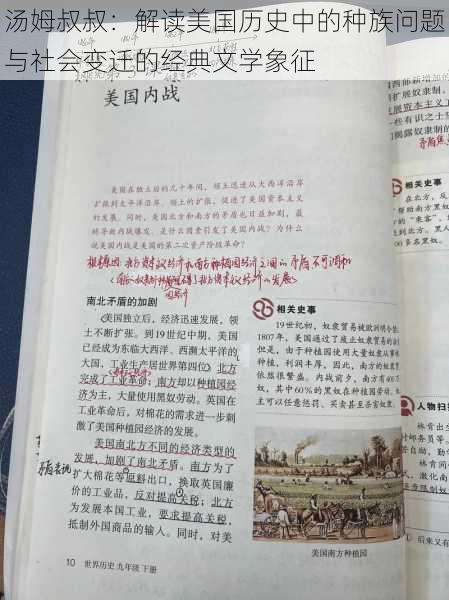 汤姆叔叔：解读美国历史中的种族问题
与社会变迁的经典文学象征
美国内战
美国在独立后的几十年间，领土迅速从大西洋沿岸
扩张到太平洋沿岸。领土的扩张，促进了美国资本主义
的发展。同时，美国北方和南方的矛盾也日益加剧，最
终导致内战爆发。是什么因素引发了美国内战？为什么
说美国内战是美国的第二次资产阶级革命？
南北矛盾的加剧
美国独立后，经济迅速发展，领
土不断扩张。到19世纪中期，美国
已经成为东临大西洋、西濒太平洋的
大国，工业生产居世界第四位。北方
完成了工业革命；南方却以种植园经
济为主，大量使用黑奴劳动。英国在
工业革命后，对棉花的需求进一步刺
激了美国种植园经济的发展。
美国南北方不同的经济类型的
发展，加剧了南北矛盾。南方为了
扩大棉花等原料出口，换取英国廉
价的工业品，反对提高关税；北方
为发展本国工业，要求提高关税，
抵制外国商品的输入。同时，对美
10 世界历史 九年级 下册
相关史事
19世纪初，奴隶贸易被欧洲明令禁
1807年，美国通过了废止奴隶贸易的
但是，由于种植园使用大量奴隶从事
种植，利润丰厚，因此，南方的奴隶
依然很繁盛。内战前夕，南方有400
奴，其中60%的黑奴在种植园劳动。
主可以任意惩罚、买卖甚至杀害奴隶
美国南方种植园
西部新增加的
扩展奴隶制。
发展资本主义工
一些有识之士
揭露奴隶制的
相关史事
在北方，从
帮助南方黑奴
的“乘客”，
到北方。黑人
人物扫描
林肯出生
邮务员等
自助，勤
林肯同
，激化南
等限制奴
后来又有